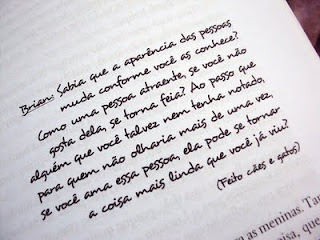 Brian: Sabia que a aparência das pessoas
muda conforme você as conhece?
Como uma pessoa atraente, se você não
gosta dela, se torna feia? Ao passo que
alguém que você talvez nem tenha notado,
para quem não olharia mais de uma vez,
se você ama essa pessoa, ela pode se tornar
a coisa mais linda que você já viu?
(Feito cães e gatos)
as meninas. Ta
isa, que